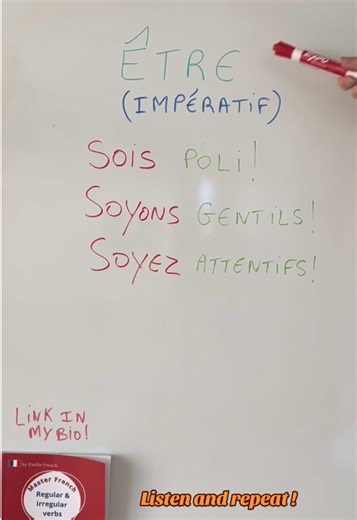 ÊTRE
(IMPÉRATIF)
SOIS POLI!
SOYONS GENTILS!
SOYEZ ATTENTIFS!
LINK IN
MY BIO!
by Emilie French
Master French
Regular &
Irregular
verbs
Listen and repeat !